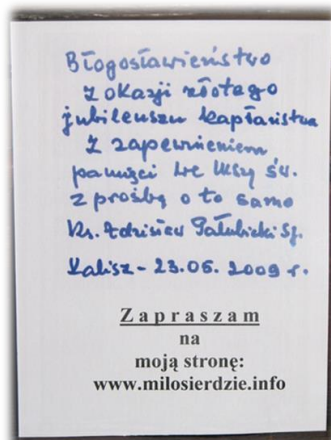 Błogosławieństwo
z okazji złotego
jubileuszu kapłaństwa
z zapewnieniem
pamięci we Mszy św.
z prośbą o to samo
Ks. Zdzisław Pałubicki Sj.
Kalisz - 23.06. 2009 r.
Zapraszam
na
moją stronę:
www.milosierdzie.info